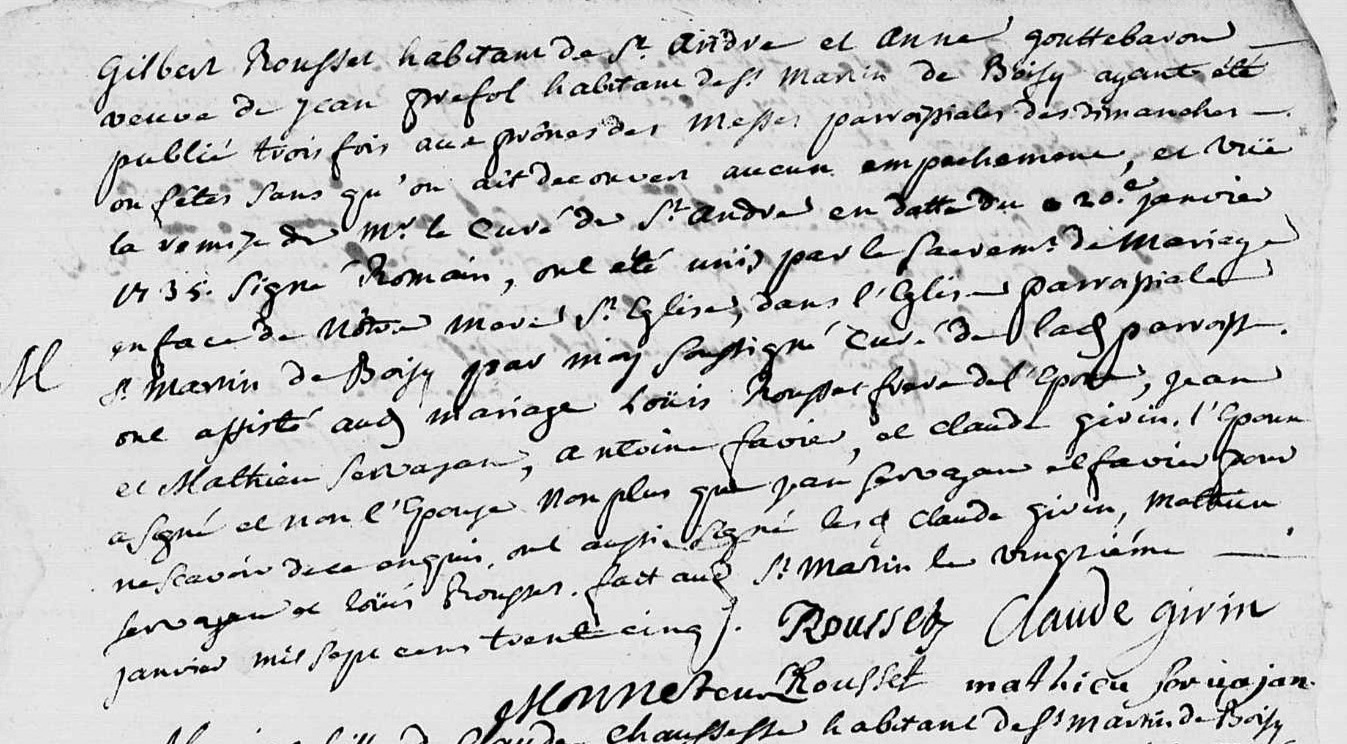 Gilbert Rousset habitant de St André et Anne gouttebaron
veuve de jean prefol habitant de St Martin de Boisy ayant été
publié trois fois aux prônes des Messes parroissiales des dimanches
ou fêtes sans qu'on ait decouvert aucun empechement, et vüe
la remise de Mr. le Curé de St André en datte du 20.e janvier
1735. signé Romain, ont été unis par le sacremt. de Mariage
en face de Nôtre mere Ste Eglise, dans l'Eglise parroissiale
M St Martin de Boisy par moy soussigné Curé de lad parroisse.
ont assisté aud mariage Loüis Rousset frere de l'Epoux, jean
et Mathieu servajan, antoine favier, et claude givin. l'Epoux
a signé et non l'Epouse non plus que jean servajan et favier pour
ne scavoir de ce enquis, ont aussi signé lesd Claude givin, Mathieu
servajan et loüis Rousset. fait aud St Martin le vingtiéme
janvier mil sept cens trente cinq. Rousset Claude givin
Rousset mathieu servajan.
Claude Chaussesse habitant de St Martin de Boisy